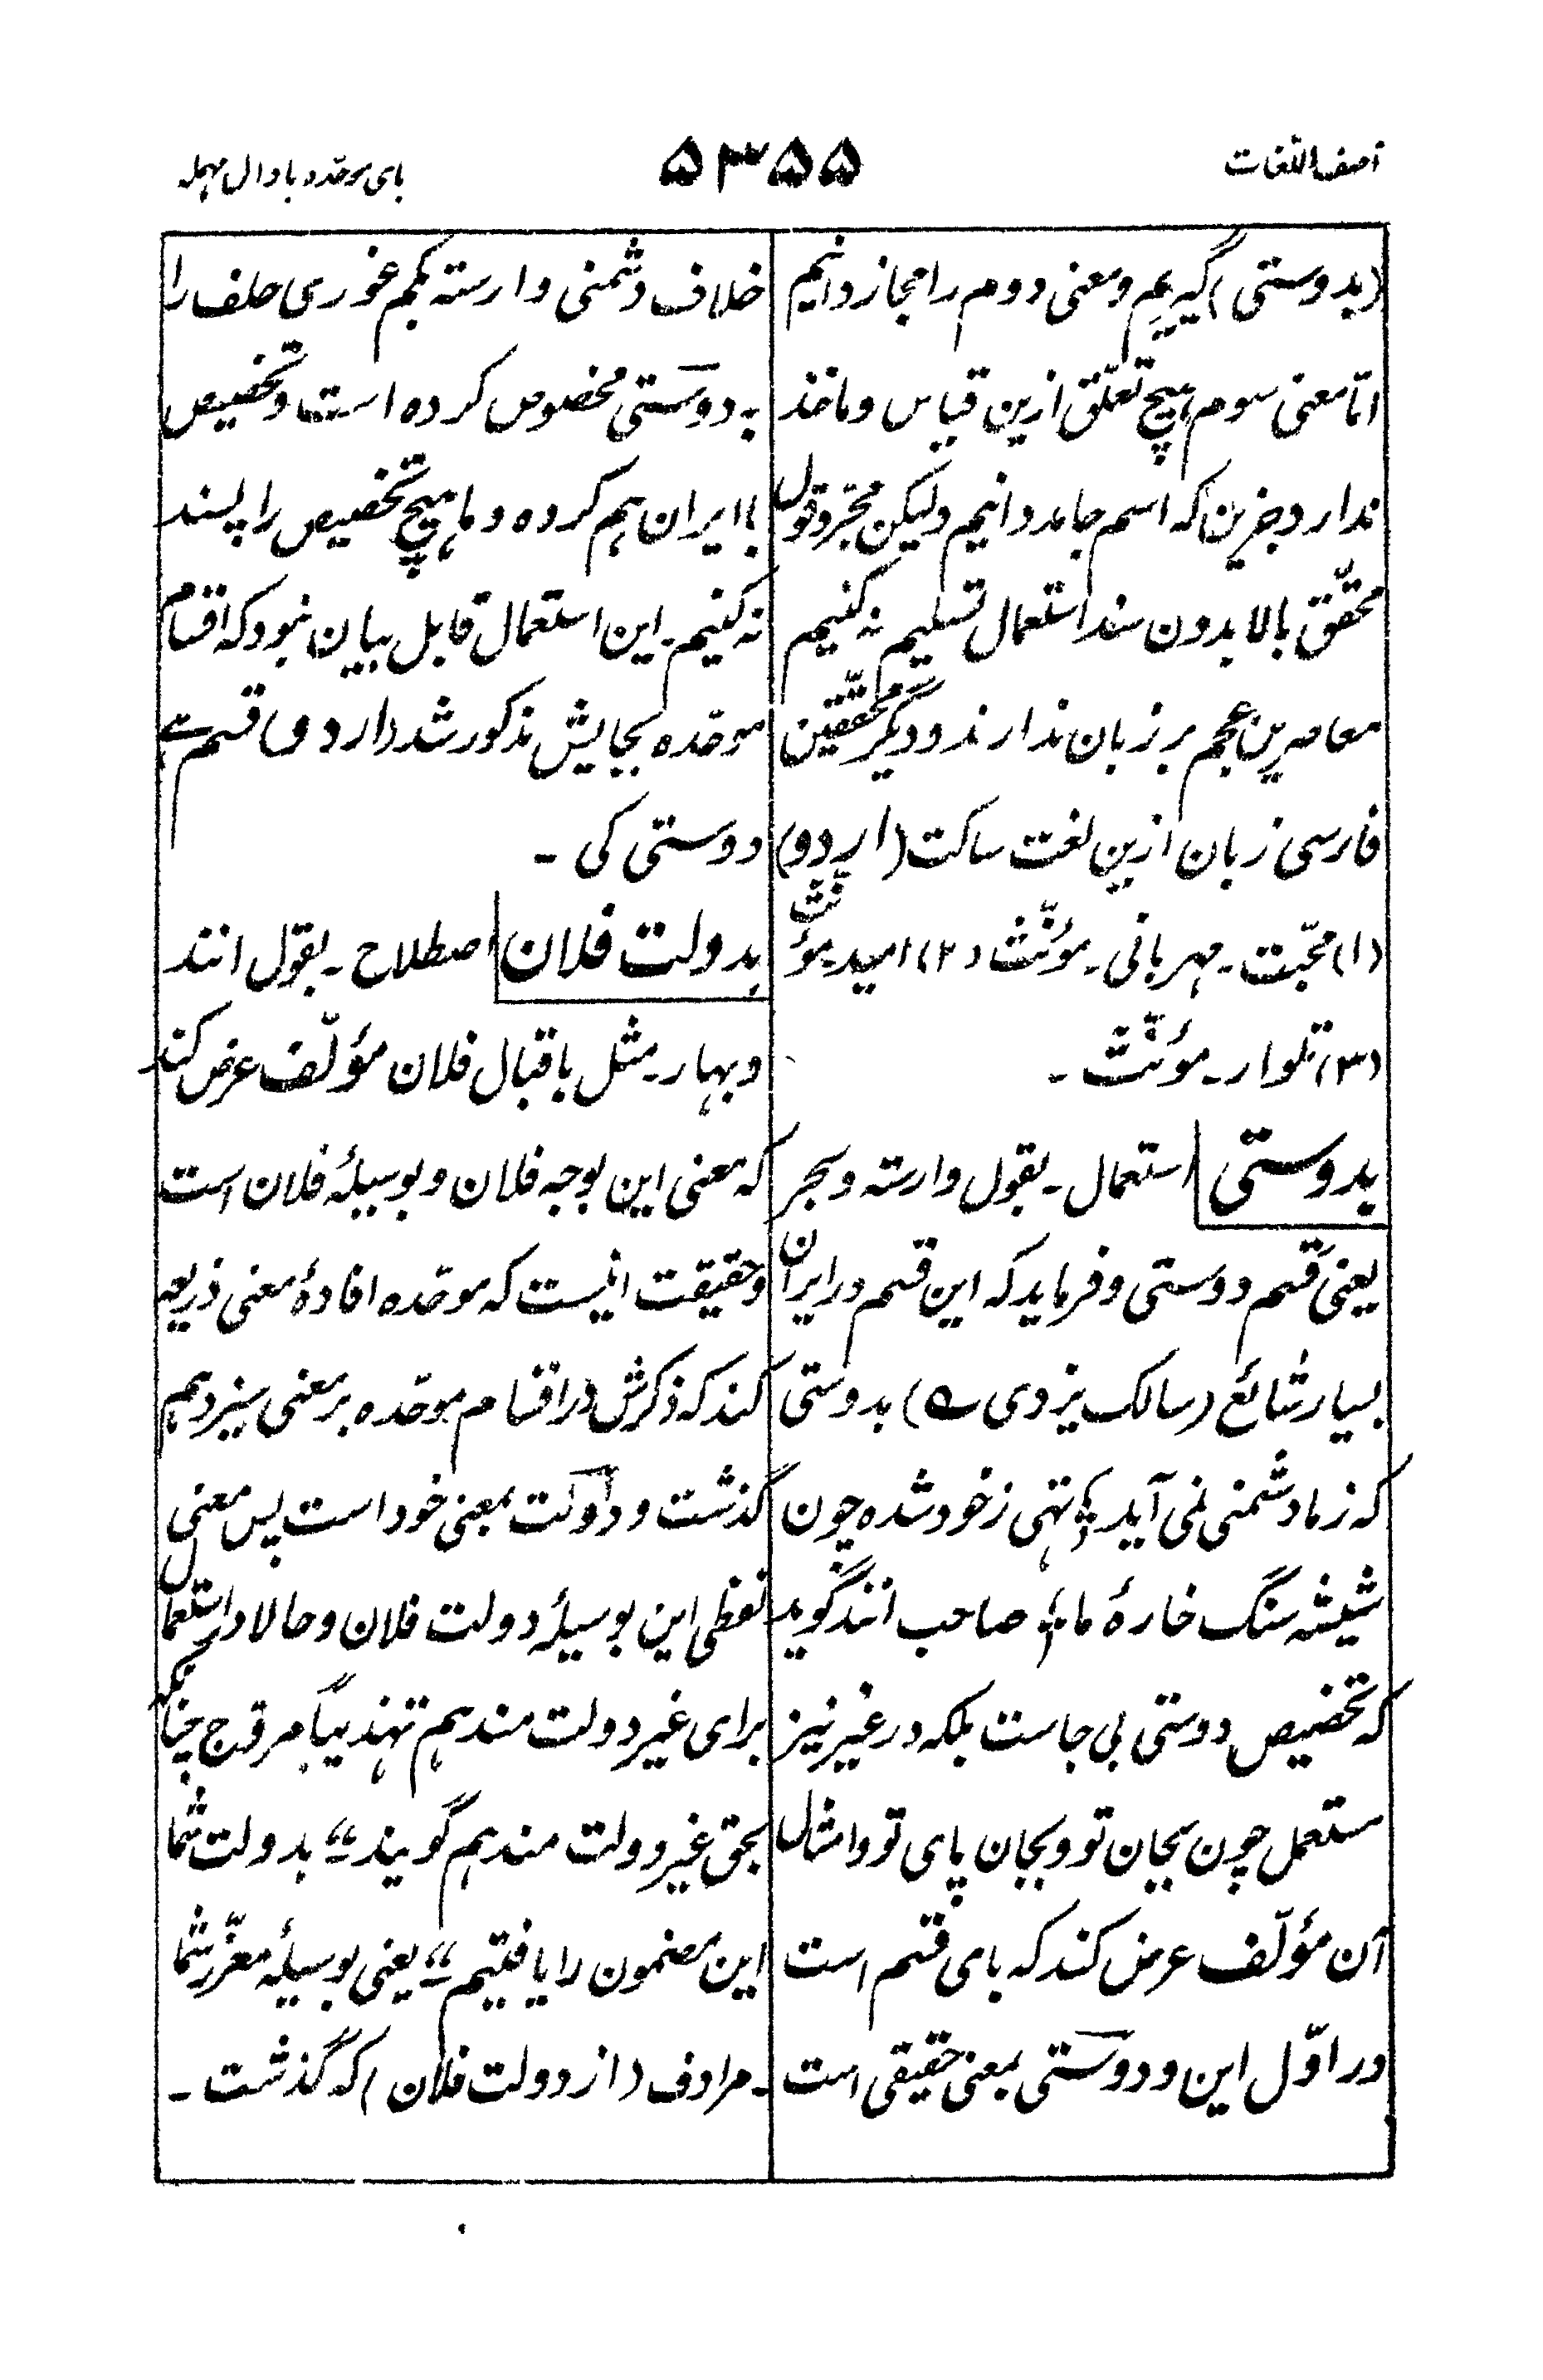 آصف اللّغات
۵۳۵۵
بای موحّده با دال مهمله
(بدوستی) گیریم و معنی دوم را مجاز دانیم
امّا معنی سوم هیچ تعلّق ازین قیاس و ماخذ
ندارد جزین که اسم جامد دانیم ولیکن مجرّد قول
محقّق بالا بدون سند استعمال تسلیم نه کنیم
معاصرین عجم بر زبان ندارند و دیگر محقّقین
فارسی زبان ازین لغت ساکت (اردو)
(۱) محبّت ـ مهربانی ـ مؤنّث (۲) امید ـ مؤنّث
(۳) تلوار ـ مؤنّث ـ
بدوستی استعمال ـ بقول وارسته و بحر
یعنی قسم دوستی و فرماید که این قسم در ایران
بسیار شائع (سالک یزدی ؎) بدوستی
که ز ما دشمنی نمی آید ؛ تهی ز خود شده چون
شیشه سنگ خارهٔ ما ؛ صاحب انند گوید
که تخصیص دوستی بی جاست بلکه در غیر نیز
مستعمل چون بجان تو و بجان پای تو و امثال
آن مؤلّف عرض کند که بای قسم است
در اوّل این و دوستی بمعنی حقیقی است
خلاف دشمنی وارسته بکم غوری حلف را
به دوستی مخصوص کرده است و تخصیص
با ایران هم کرده و ما هیچ تخصیص را پسند
نه کنیم ـ این استعمال قابل بیان نبود که اقسام
موحّده بجایش مذکور شد (اردو) قسم ہے
دوستی کی ـ
بدولت فلان اصطلاح ـ بقول انند
و بهار ـ مثل باقبال فلان مؤلّف عرض کند
که معنی این بوجه فلان و بوسیلهٔ فلان است
و حقیقت اینست که موحّده افادهٔ معنی ذریعه
کند که ذکرش در اقسام موحّده بر معنی سیزدهم
گذشت و دولت بمعنی خود است پس معنی
لفظی این بوسیلهٔ دولت فلان و حالا در استعمال
برای غیر دولت مند هم تهذیباً مروّج چنانکه
بحق غیر دولت مند هم گویند ـ “بدولت شما
این مضمون را یافتیم” یعنی بوسیلهٔ معزّز شما
ـ مرادف (از دولت فلان) که گذشت ـ